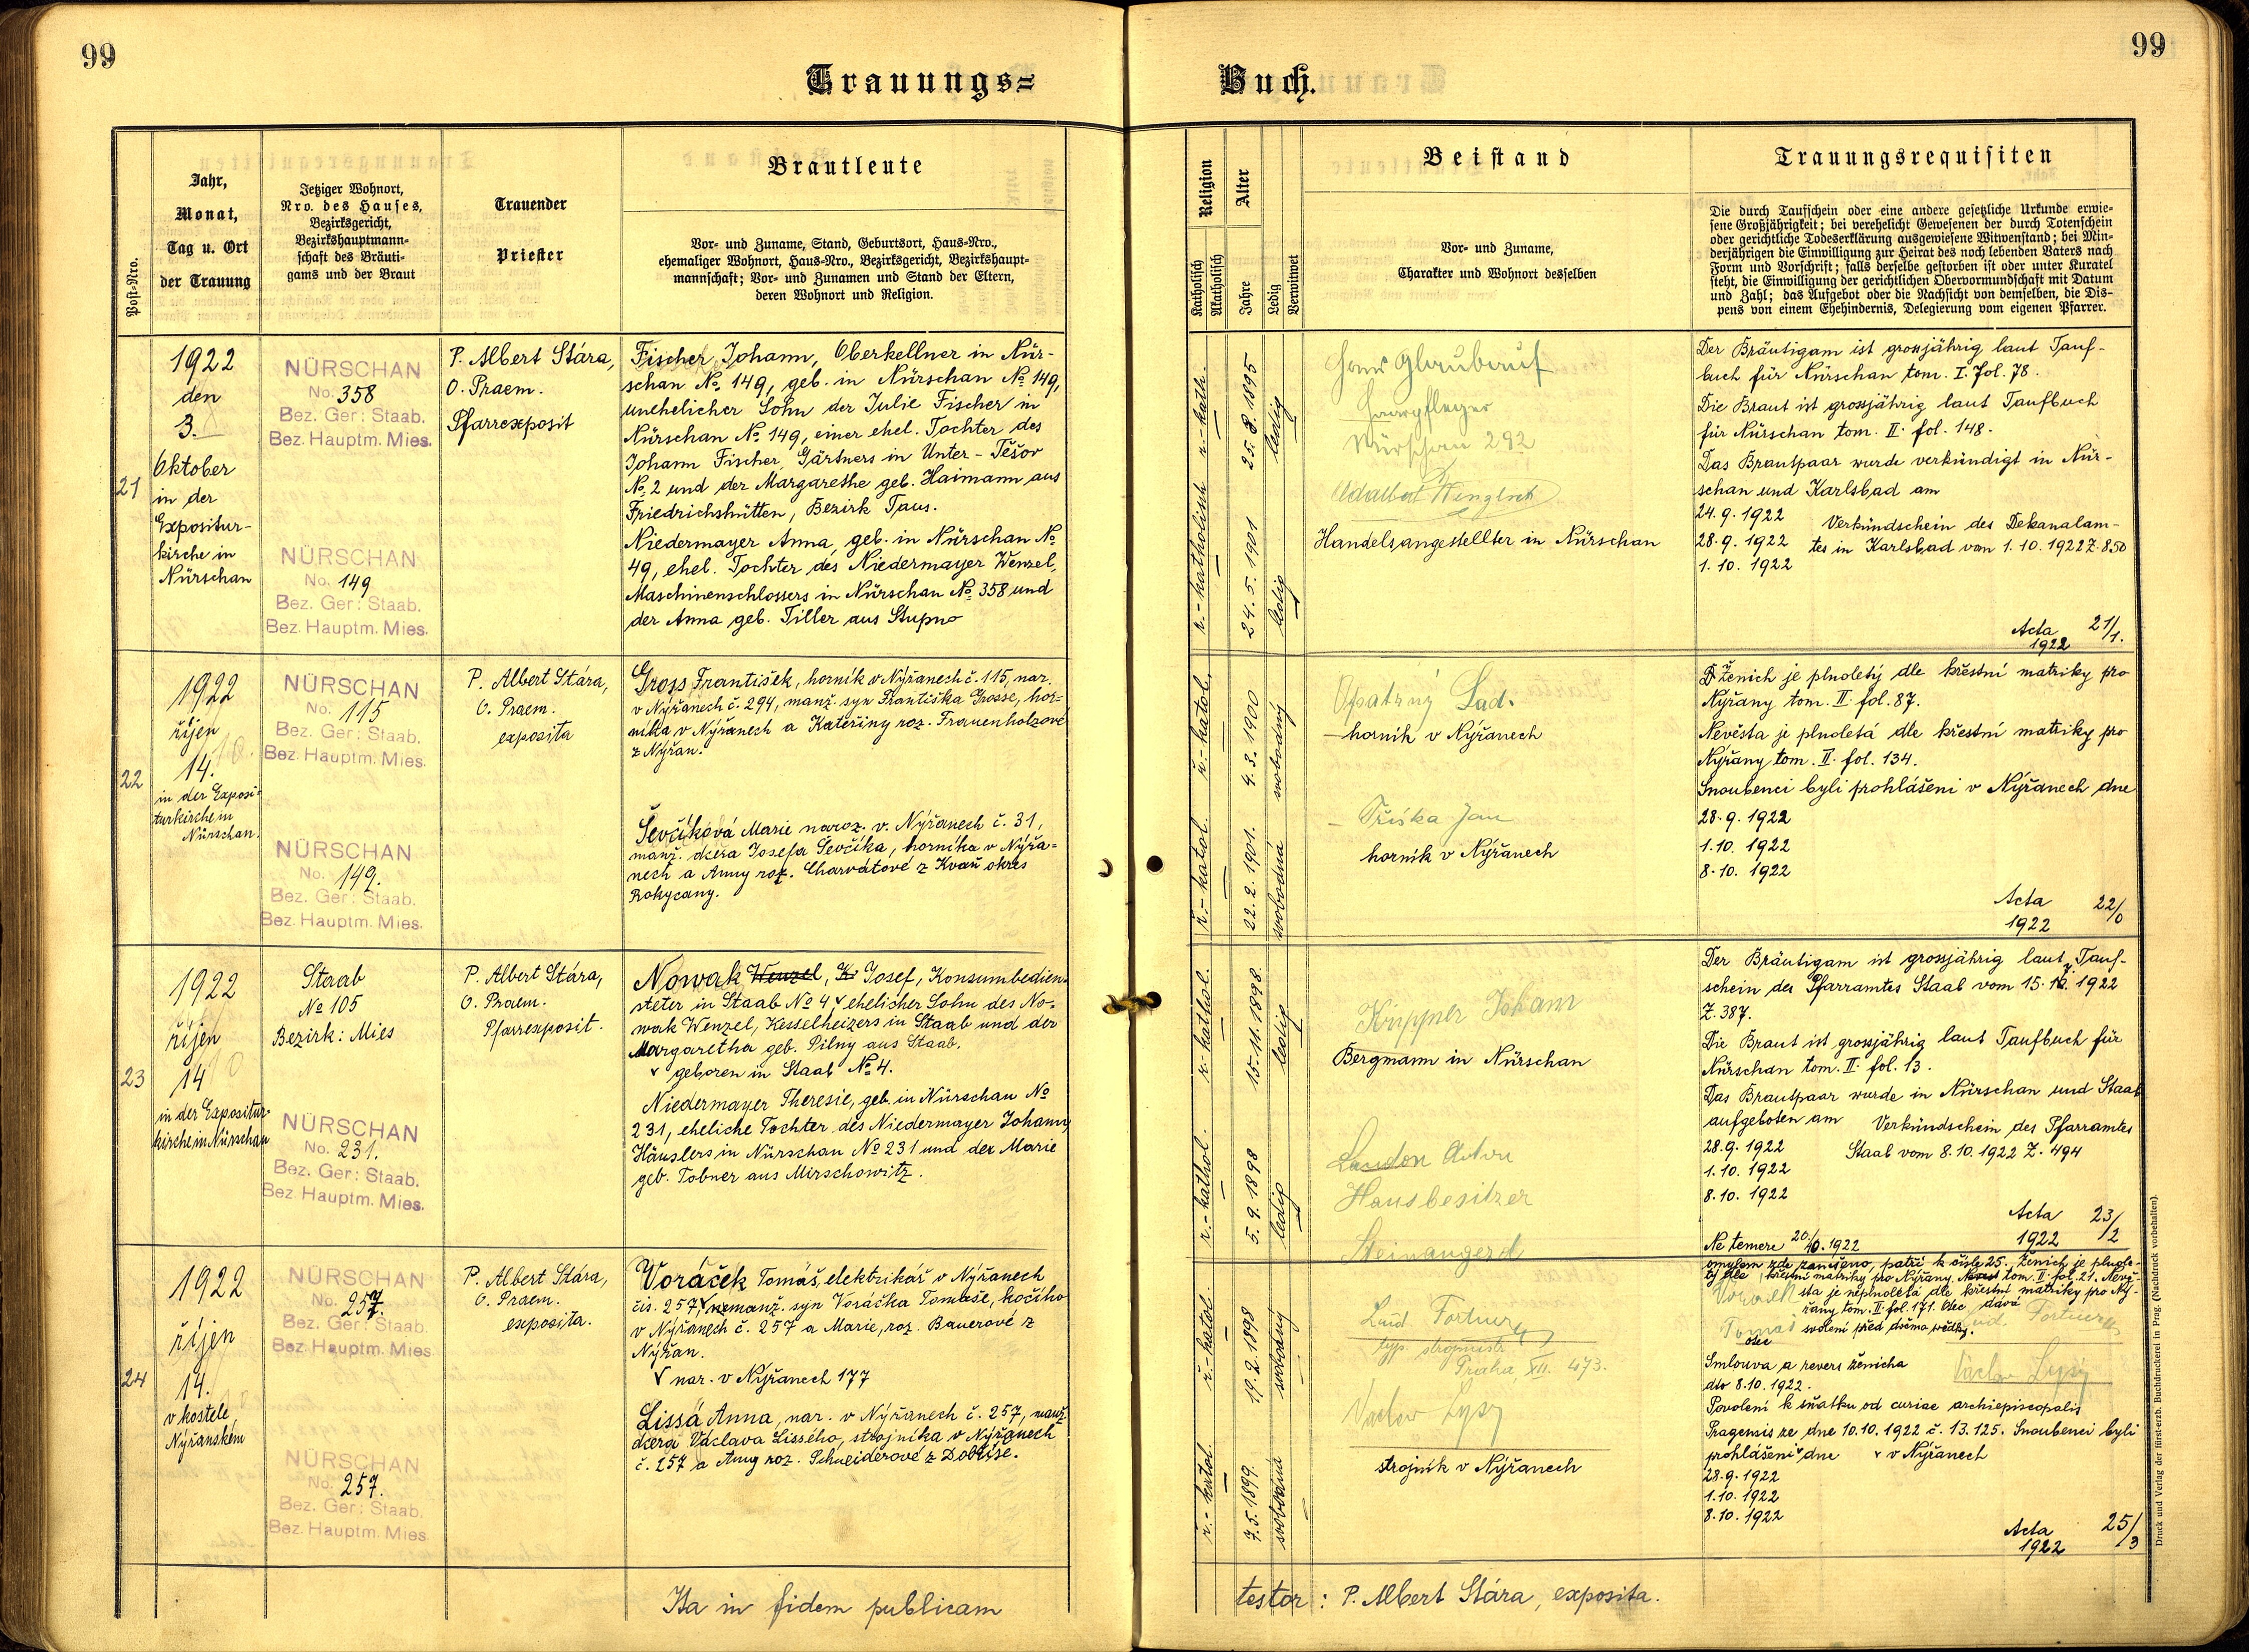 99
99
Trauungs=
Buch.
Post-Nro.
Jahr,
Monat,
Tag u. Ort
der Trauung
Jetziger Wohnort,
Nro. des Hauses,
Bezirksgericht,
Bezirkshauptmann-
schaft des Bräuti-
gams und der Braut
Trauender
Priester
Brautleute
Vor- und Zuname, Stand, Geburtsort, Haus-Nro.,
ehemaliger Wohnort, Haus-Nro., Bezirksgericht, Bezirkshaupt-
mannschaft; Vor- und Zunamen und Stand der Eltern,
deren Wohnort und Religion.
Religion
Katholisch
Akatholisch
Alter
Jahre
Ledig
Verwitwet
Beistand
Vor- und Zuname,
Charakter und Wohnort desselben
Trauungsrequisiten
Die durch Taufschein oder eine andere gesetzliche Urkunde erwie-
sene Großjährigkeit; bei verehelicht Gewesenen der durch Totenschein
oder gerichtliche Todeserklärung ausgewiesene Witwenstand; bei Min-
derjährigen die Einwilligung zur Heirat des noch lebenden Vaters nach
Form und Vorschrift; falls derselbe gestorben ist oder unter Kuratel
steht, die Einwilligung der gerichtlichen Obervormundschaft mit Datum
und Zahl; das Aufgebot oder die Nachsicht von demselben, die Dis-
pens von einem Ehehindernis, Delegierung vom eigenen Pfarrer.
21
1922
den
3.
Oktober
in der
Expositur-
kirche in
Nürschan
NÜRSCHAN
No. 358
Bez. Ger: Staab.
Bez. Hauptm. Mies.
NÜRSCHAN
No. 149
Bez. Ger: Staab.
Bez. Hauptm. Mies.
P. Albert Stára,
O. Praem.
Pfarrexposit
Fischer Johann, Oberkellner in Nür-
schan No. 149, geb. in Nürschan No 149,
unehelicher Sohn der Julie Fischer in
Nürschan No. 149, einer ehel. Tochter des
Johann Fischer, Gärtners in Unter-Těšov
No. 2 und der Margarethe geb. Haimann aus
Friedrichshütten, Bezirk Taus.
Niedermayer Anna, geb. in Nürschan No
49, ehel. Tochter des Niedermayer Wenzel,
Maschinenschlossers in Nürschan No. 358 und
der Anna geb. Tiller aus Stupno
r.-kath.
25.8.1895
ledig
r.-katholisch
24.5.1901
ledig
Hans Glaubauf
Haarpfleger
Nürschan 292
Adalbert
Handelsangestellter in Nürschan
Der Bräutigam ist grossjährig laut Tauf-
buch für Nürschan tom. I. fol. 78.
Die Braut ist grossjährig laut Taufbuch
für Nürschan tom. II. fol. 148.
Das Brautpaar wurde verkündigt in Nür-
schan und Karlsbad am
24.9.1922
28.9.1922
1.10.1922
Verkündschein des Dekanalam-
tes in Karlsbad vom 1.10.1922 Z. 850
Acta 21/1.
1922
22
1922
říjen
14.
in der Exposi-
turkirche in
Nürschan.
NÜRSCHAN
No. 115
Bez. Ger: Staab.
Bez. Hauptm. Mies.
NÜRSCHAN
No. 149.
Bez. Ger: Staab.
Bez. Hauptm. Mies.
P. Albert Stára,
O. Praem.
exposita
Gross František, horník v Nýřanech č. 115, nar.
v Nýřanech č. 294, manž. syn Františka Grosse, hor-
níka v Nýřanech a Kateřiny roz. Frauenholzové
z Nýřan.
Ševčíková Marie naroz. v. Nýřanech č. 31,
manž. dcera Josefa Ševčíka, horníka v Nýřa-
nech a Anny roz. Charvátové z Kvaň okres
Rokycany.
ř.-katol.
4.3.1900
svobodný
ř.-katol.
22.2.1901.
svobodná
Opatrný Lad.
horník v Nýřanech
Tříska Jan
horník v Nýřanech
Ženich je plnoletý dle křestní matriky pro
Nýřany tom. II. fol. 87.
Nevěsta je plnoletá dle křestní matriky pro
Nýřany tom. II. fol. 134.
Snoubenci byli prohlášeni v Nýřanech dne
28.9.1922
1.10.1922
8.10.1922
Acta 22/0
1922
23
1922
říjen
14
in der Expositur-
kirche in Nürschan
Staab
No 105
Bezirk: Mies
NÜRSCHAN
No. 231.
Bez. Ger: Staab.
Bez. Hauptm. Mies.
P. Albert Stára,
O. Praem.
Pfarrexposit.
Nowak Wenzel, K Josef, Konsumbedien-
steter in Staab No 4, v ehelicher Sohn des No-
wak Wenzel, Kesselheizers in Staab und der
Margaretha geb. Pilny aus Staab.
v geboren in Staab No. 4.
Niedermayer Theresie, geb. in Nürschan No
231, eheliche Tochter des Niedermayer Johann
Häuslers in Nürschan No 231 und der Marie
geb. Tobner aus Mirschowitz.
r.-kathol.
15.11.1898.
ledig
r.-kathol.
5.9.1898
ledig
Krippner Johann
Bergmann in Nürschan
Landon Anton
Hausbesitzer
Steinaugezd
Der Bräutigam ist grossjährig laut Tauf-
schein des Pfarramtes Staab vom 15.10.1922
Z. 387.
Die Braut ist grossjährig laut Taufbuch für
Nürschan tom. II. fol. 13.
Das Brautpaar wurde in Nürschan und Staab
aufgeboten am
28.9.1922
1.10.1922
8.10.1922
Verkündschein des Pfarramtes
Staab vom 8.10.1922 Z. 494
Acta 23/2
1922
Ne temere 20./10.1922
24
1922
říjen
14.
v kostele
Nýřanském
NÜRSCHAN
No. 257.
Bez. Ger: Staab.
Bez. Hauptm. Mies
NÜRSCHAN
No. 257.
Bez. Ger: Staab.
Bez. Hauptm. Mies.
P. Albert Stára,
O. Praem.
exposita.
Voráček Tomáš, elektrikář v Nýřanech
čís. 257, v nemanž. syn Voráčka Tomáše, kočího
v Nýřanech č. 257 a Marie, roz. Bauerové z
Nýřan.
v nar. v Nýřanech 177
Lissá Anna, nar. v Nýřanech č. 257, manž.
dcera Václava Lissého, strojníka v Nýřanech
č. 257 a Anny roz. Schneiderové z Dobříše.
ř.-katol.
19.2.1898
svobodný
ř.-katol.
7.5.1899.
svobodná
Lud. Fortner
typ. strojmistr
Praha, XII. 473.
Václav Lysý
strojník v Nýřanech
omylem zde zaneseno, patří k číslu 25. Ženich je plnole-
tý dle křestní matriky pro Nýřany tom. II. fol. 21. Nevě-
sta je neplnoletá dle křestní matriky pro Ný-
řany tom. II. fol. 171. Otec dává
svolení před dvěma svědky.
Tomáš
otec
Václav Lysý
Smlouva a revers ženicha
dto 8.10.1922.
Povolení k sňatku od curiae archiepiscopalis
Pragensis ze dne 10.10.1922 č. 13.125. Snoubenci byli
prohlášeni v dne v v Nýřanech
28.9.1922
1.10.1922
8.10.1922
Acta 25/3
1922
Ita in fidem publicam
testor: P. Albert Stára, exposita.
Druck und Verlag der fürst-erzb. Buchdruckerei in Prag. (Nachdruck vorbehalten).